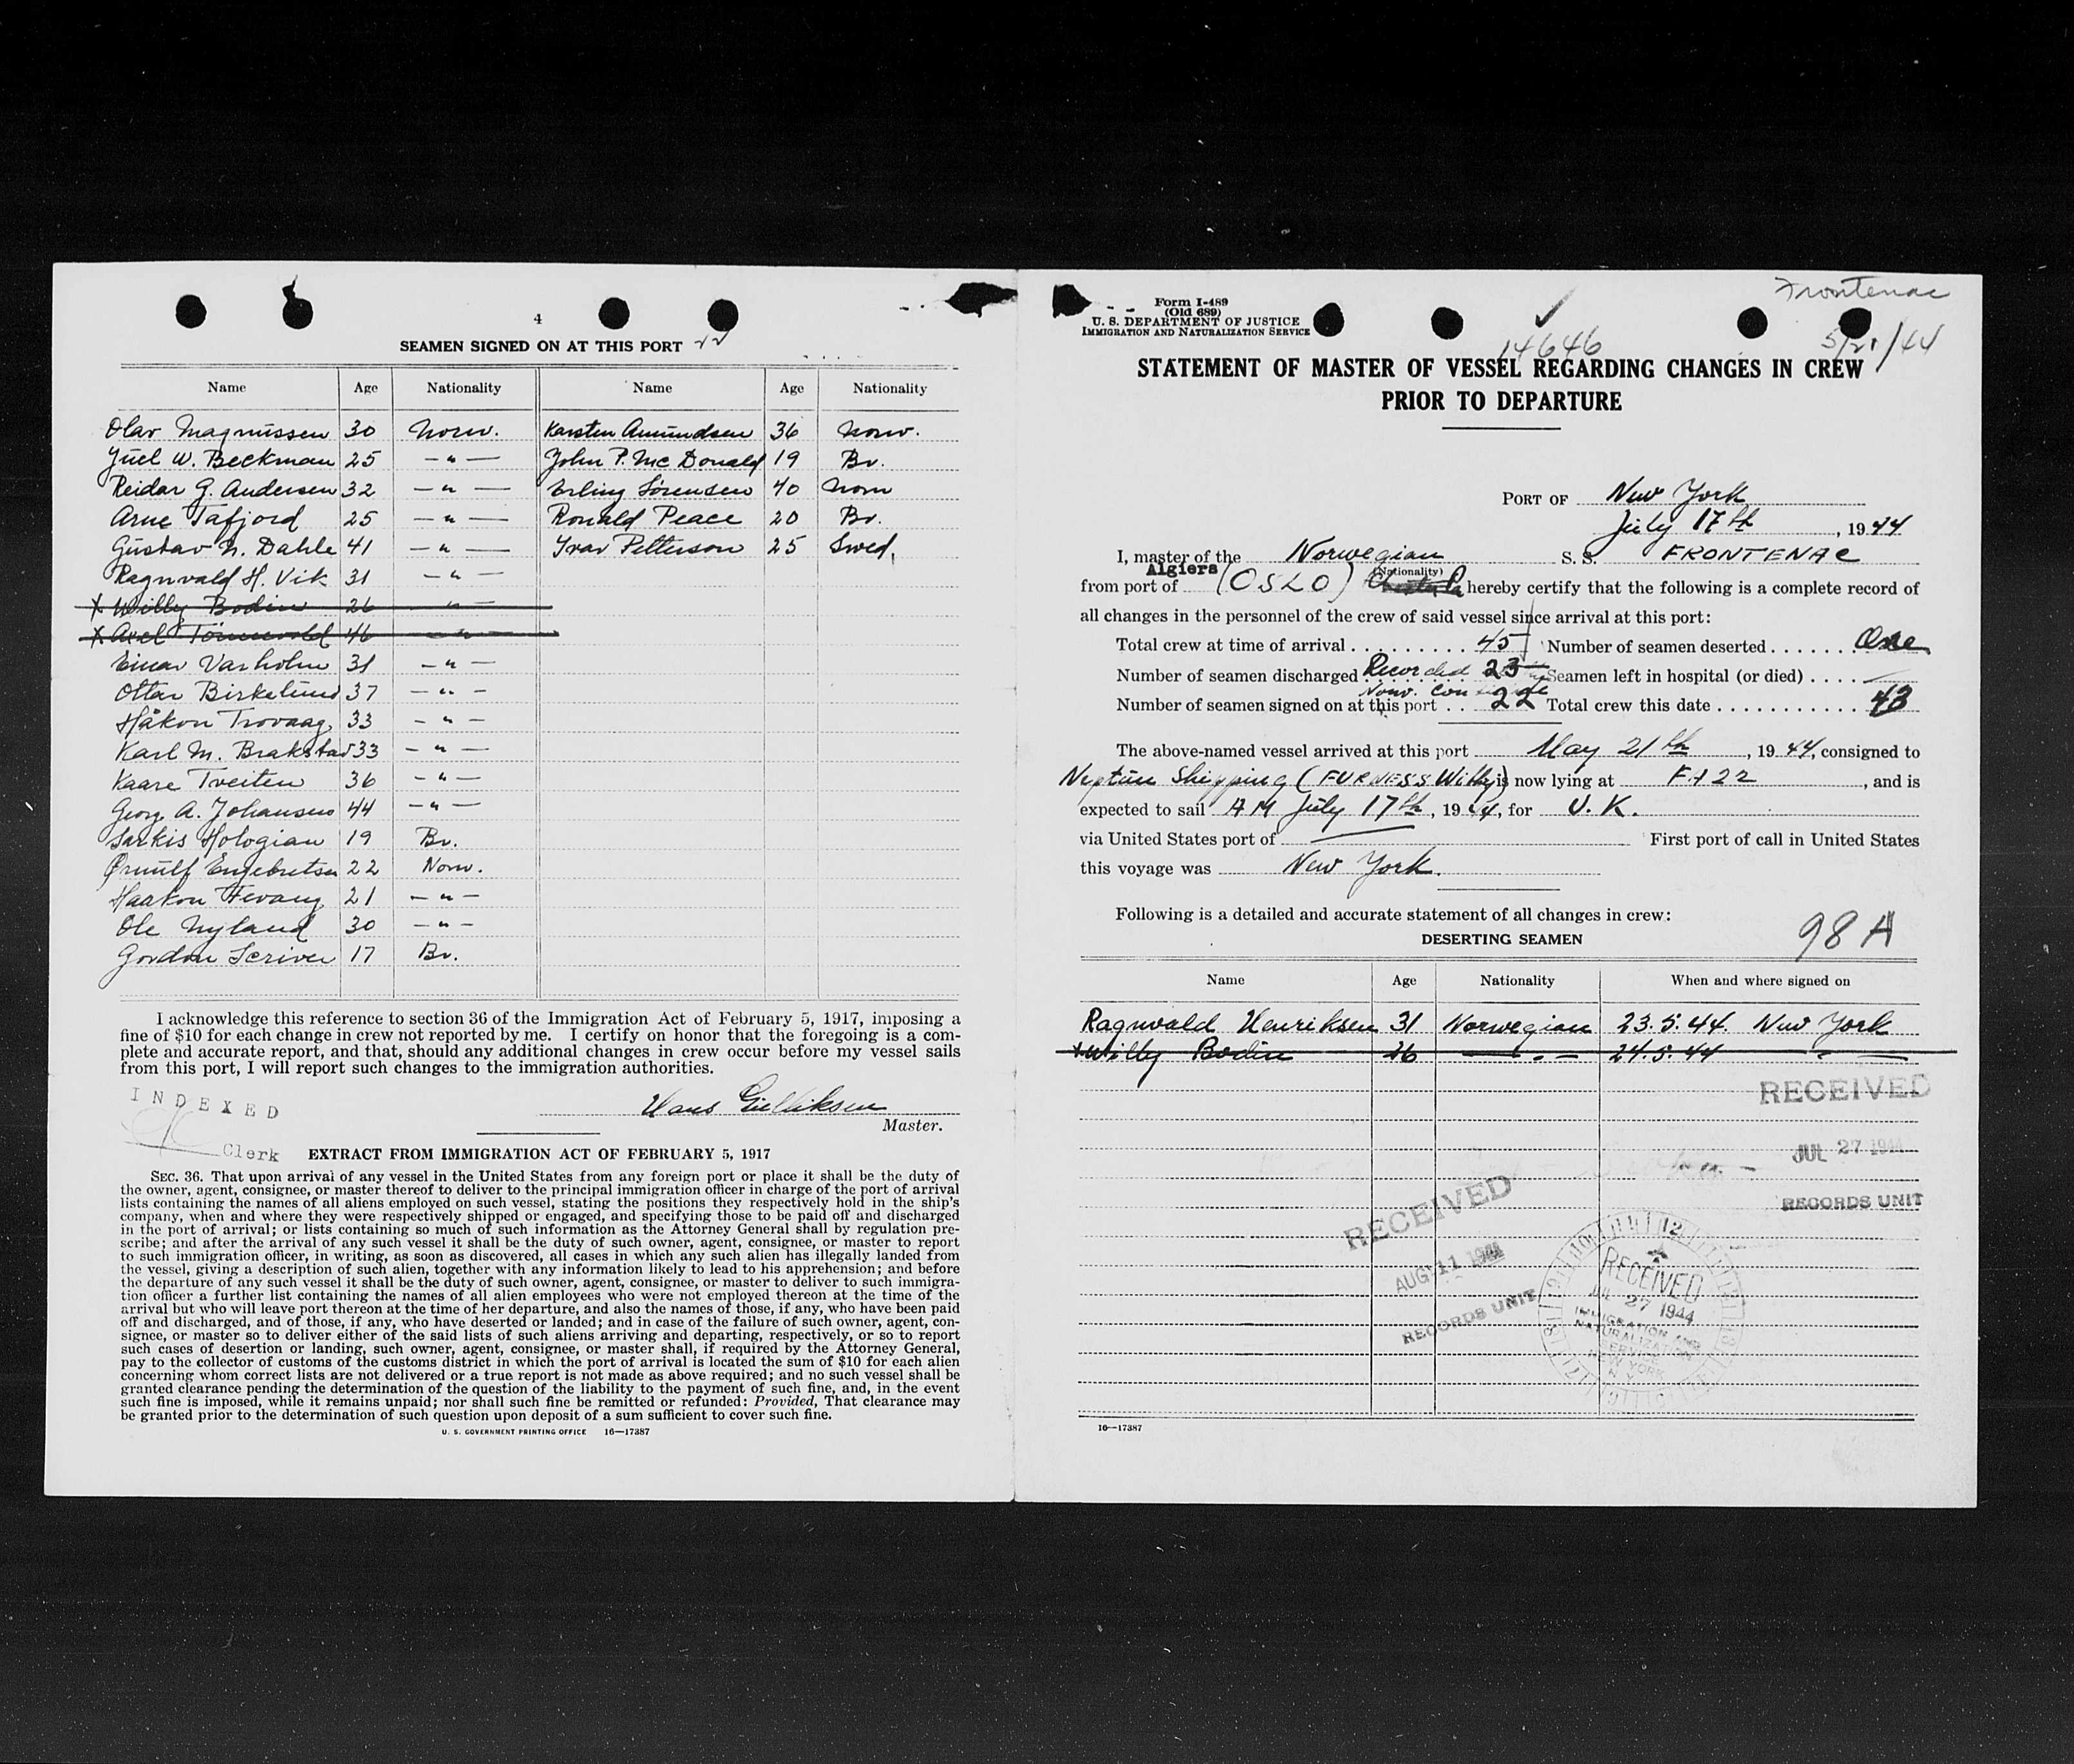 4
SEAMEN SIGNED ON AT THIS PORT 22
Name Age Nationality Name Age Nationality
Olav Magnussen 30 Norw. Karsten Amundsen 36 Norw.
Juel W. Beckman 25 — " — John P. Mc Donald 19 Br.
Reidar G. Andersen 32 — " — Erling Sörensen 40 Norw
Arne Tafjord 25 — " — Ronald Peace 20 Br.
Gustav N. Dahle 41 — " — Ivar Petterson 25 Swed.
Ragnvald H. Vik 31 — " —
X Willy Bodin 26 — " —
X Axel Tönnevold 46 — " —
Einar Varholm 31 — " —
Ottar Birkelund 37 — " —
Håkon Trovaag 33 — " —
Karl M. Brakstad 33 — " —
Kaare Tveiten 36 — " —
Georg A. Johansen 44 — " —
Sarkis Hologian 19 Br.
Ørnulf Engebretsen 22 Norw.
Haakon Hevang 21 — " —
Ole Nyland 30 — " —
Gordon Scriver 17 Br.
I acknowledge this reference to section 36 of the Immigration Act of February 5, 1917, imposing a
fine of $10 for each change in crew not reported by me. I certify on honor that the foregoing is a com-
plete and accurate report, and that, should any additional changes in crew occur before my vessel sails
from this port, I will report such changes to the immigration authorities.
INDEXED
Hans Gulliksen
Master.
Clerk
EXTRACT FROM IMMIGRATION ACT OF FEBRUARY 5, 1917
SEC. 36. That upon arrival of any vessel in the United States from any foreign port or place it shall be the duty of
the owner, agent, consignee, or master thereof to deliver to the principal immigration officer in charge of the port of arrival
lists containing the names of all aliens employed on such vessel, stating the positions they respectively hold in the ship's
company, when and where they were respectively shipped or engaged, and specifying those to be paid off and discharged
in the port of arrival; or lists containing so much of such information as the Attorney General shall by regulation pre-
scribe; and after the arrival of any such vessel it shall be the duty of such owner, agent, consignee, or master to report
to such immigration officer, in writing, as soon as discovered, all cases in which any such alien has illegally landed from
the vessel, giving a description of such alien, together with any information likely to lead to his apprehension; and before
the departure of any such vessel it shall be the duty of such owner, agent, consignee, or master to deliver to such immigra-
tion officer a further list containing the names of all alien employees who were not employed thereon at the time of the
arrival but who will leave port thereon at the time of her departure, and also the names of those, if any, who have been paid
off and discharged, and of those, if any, who have deserted or landed; and in case of the failure of such owner, agent, con-
signee, or master so to deliver either of the said lists of such aliens arriving and departing, respectively, or so to report
such cases of desertion or landing, such owner, agent, consignee, or master shall, if required by the Attorney General,
pay to the collector of customs of the customs district in which the port of arrival is located the sum of $10 for each alien
concerning whom correct lists are not delivered or a true report is not made as above required; and no such vessel shall be
granted clearance pending the determination of the question of the liability to the payment of such fine, and, in the event
such fine is imposed, while it remains unpaid; nor shall such fine be remitted or refunded: Provided, That clearance may
be granted prior to the determination of such question upon deposit of a sum sufficient to cover such fine.
U. S. GOVERNMENT PRINTING OFFICE 16—17387
Frontenac
Form I-489
(Old 689)
U. S. DEPARTMENT OF JUSTICE
IMMIGRATION AND NATURALIZATION SERVICE
14646
5/21/44
STATEMENT OF MASTER OF VESSEL REGARDING CHANGES IN CREW
PRIOR TO DEPARTURE
PORT OF New York
July 17th, 1944
I, master of the Norwegian S. S. FRONTENAC
(Nationality)
Algiers
from port of (OSLO) hereby certify that the following is a complete record of
all changes in the personnel of the crew of said vessel since arrival at this port:
Total crew at time of arrival 45 Number of seamen deserted One
Number of seamen discharged Recorded 23 Seamen left in hospital (or died)
Norw. Consulate
Number of seamen signed on at this port 22 Total crew this date 43
The above-named vessel arrived at this port May 21th, 1944, consigned to
Neptun Shipping (FURNESS Withy) is now lying at Ft 22, and is
expected to sail AM July 17th, 1944, for U. K.
via United States port of — First port of call in United States
this voyage was New York.
Following is a detailed and accurate statement of all changes in crew:
98 A
DESERTING SEAMEN
Name Age Nationality When and where signed on
Ragnvald Henriksen 31 Norwegian 23.5.44. New York
x Willy Bodin 26 — " — 24.5.44 — " —
RECEIVED
JUL 27 1944
RECORDS UNIT
RECEIVED
AUG 11 1944
RECORDS UNIT
RECEIVED
JUL 27 1944
IMMIGRATION AND
NATURALIZATION
SERVICE
NEW YORK
N. Y.
16—17387